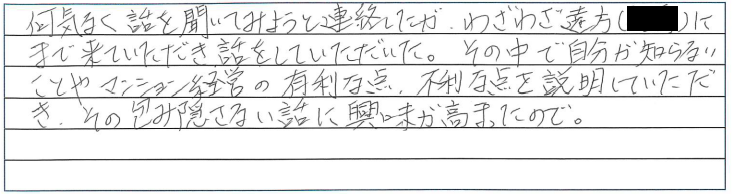 何気なく話を聞いてみようと連絡したが、わざわざ遠方()に
まで来ていただき話をしていただいた。その中で自分が知らない
ことやマンション経営の有利な点、不利な点を説明していただ
き、その包み隠さない話に興味が高まったので。